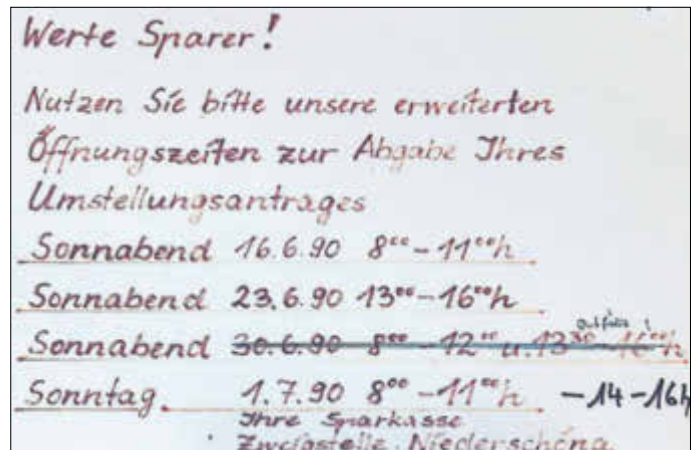 Werte Sparer!
Nutzen Sie bitte unsere erweiterten
Öffnungszeiten zur Abgabe Ihres
Umstellungsantrages
Sonnabend 16.6.90 8⁰⁰-11⁰⁰h
Sonnabend 23.6.90 13⁰⁰-16⁰⁰h
Sonnabend 30.6.90 8⁰⁰-12⁰⁰ u. 13³⁰-16⁰⁰h
Sonntag. 1.7.90 8⁰⁰-11⁰⁰h -14-16h
Ihre Sparkasse
Zweigstelle Niederschöna